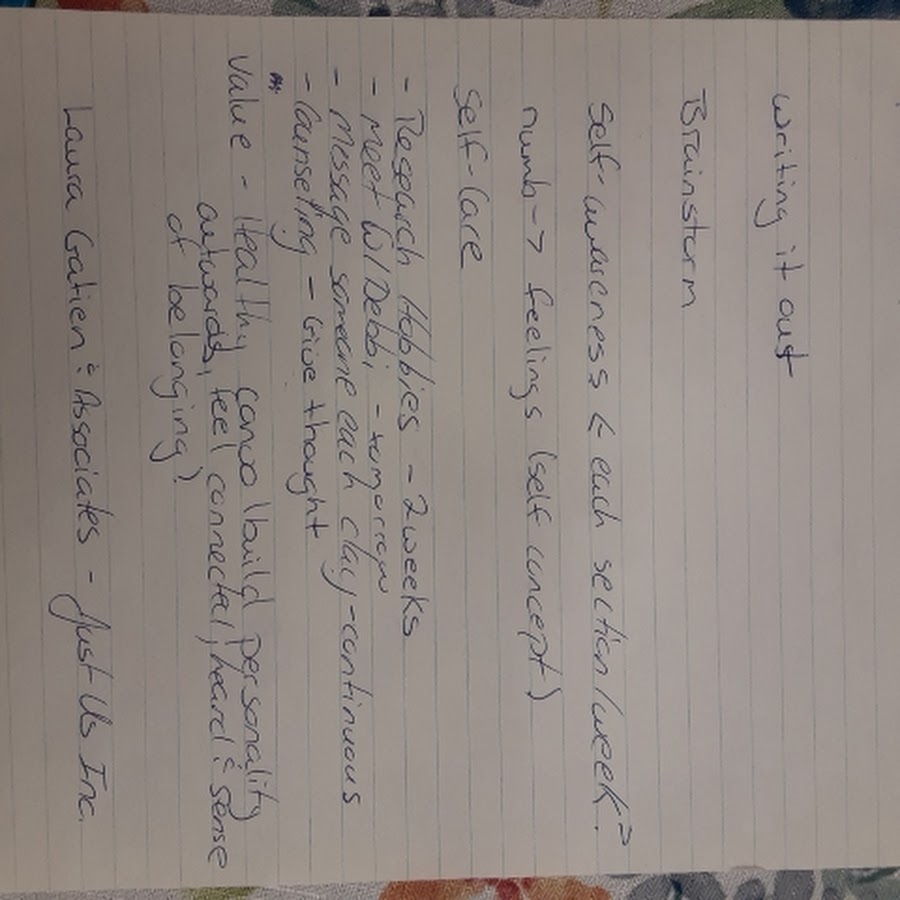 writing it out
Brainstorm
Self-awareness < each section/week?
numb -> feelings (self concept)
Self-Care
- Research Hobbies - 2 weeks
- Meet w/ Debbi - tomorrow
- Message someone each day - continuous
- Counseling - Give thought
Value - Healthy convo/build personality
outwards, feel connected, heard & sense
of belonging?
Laura Gatien & Associates - Just Us Inc.